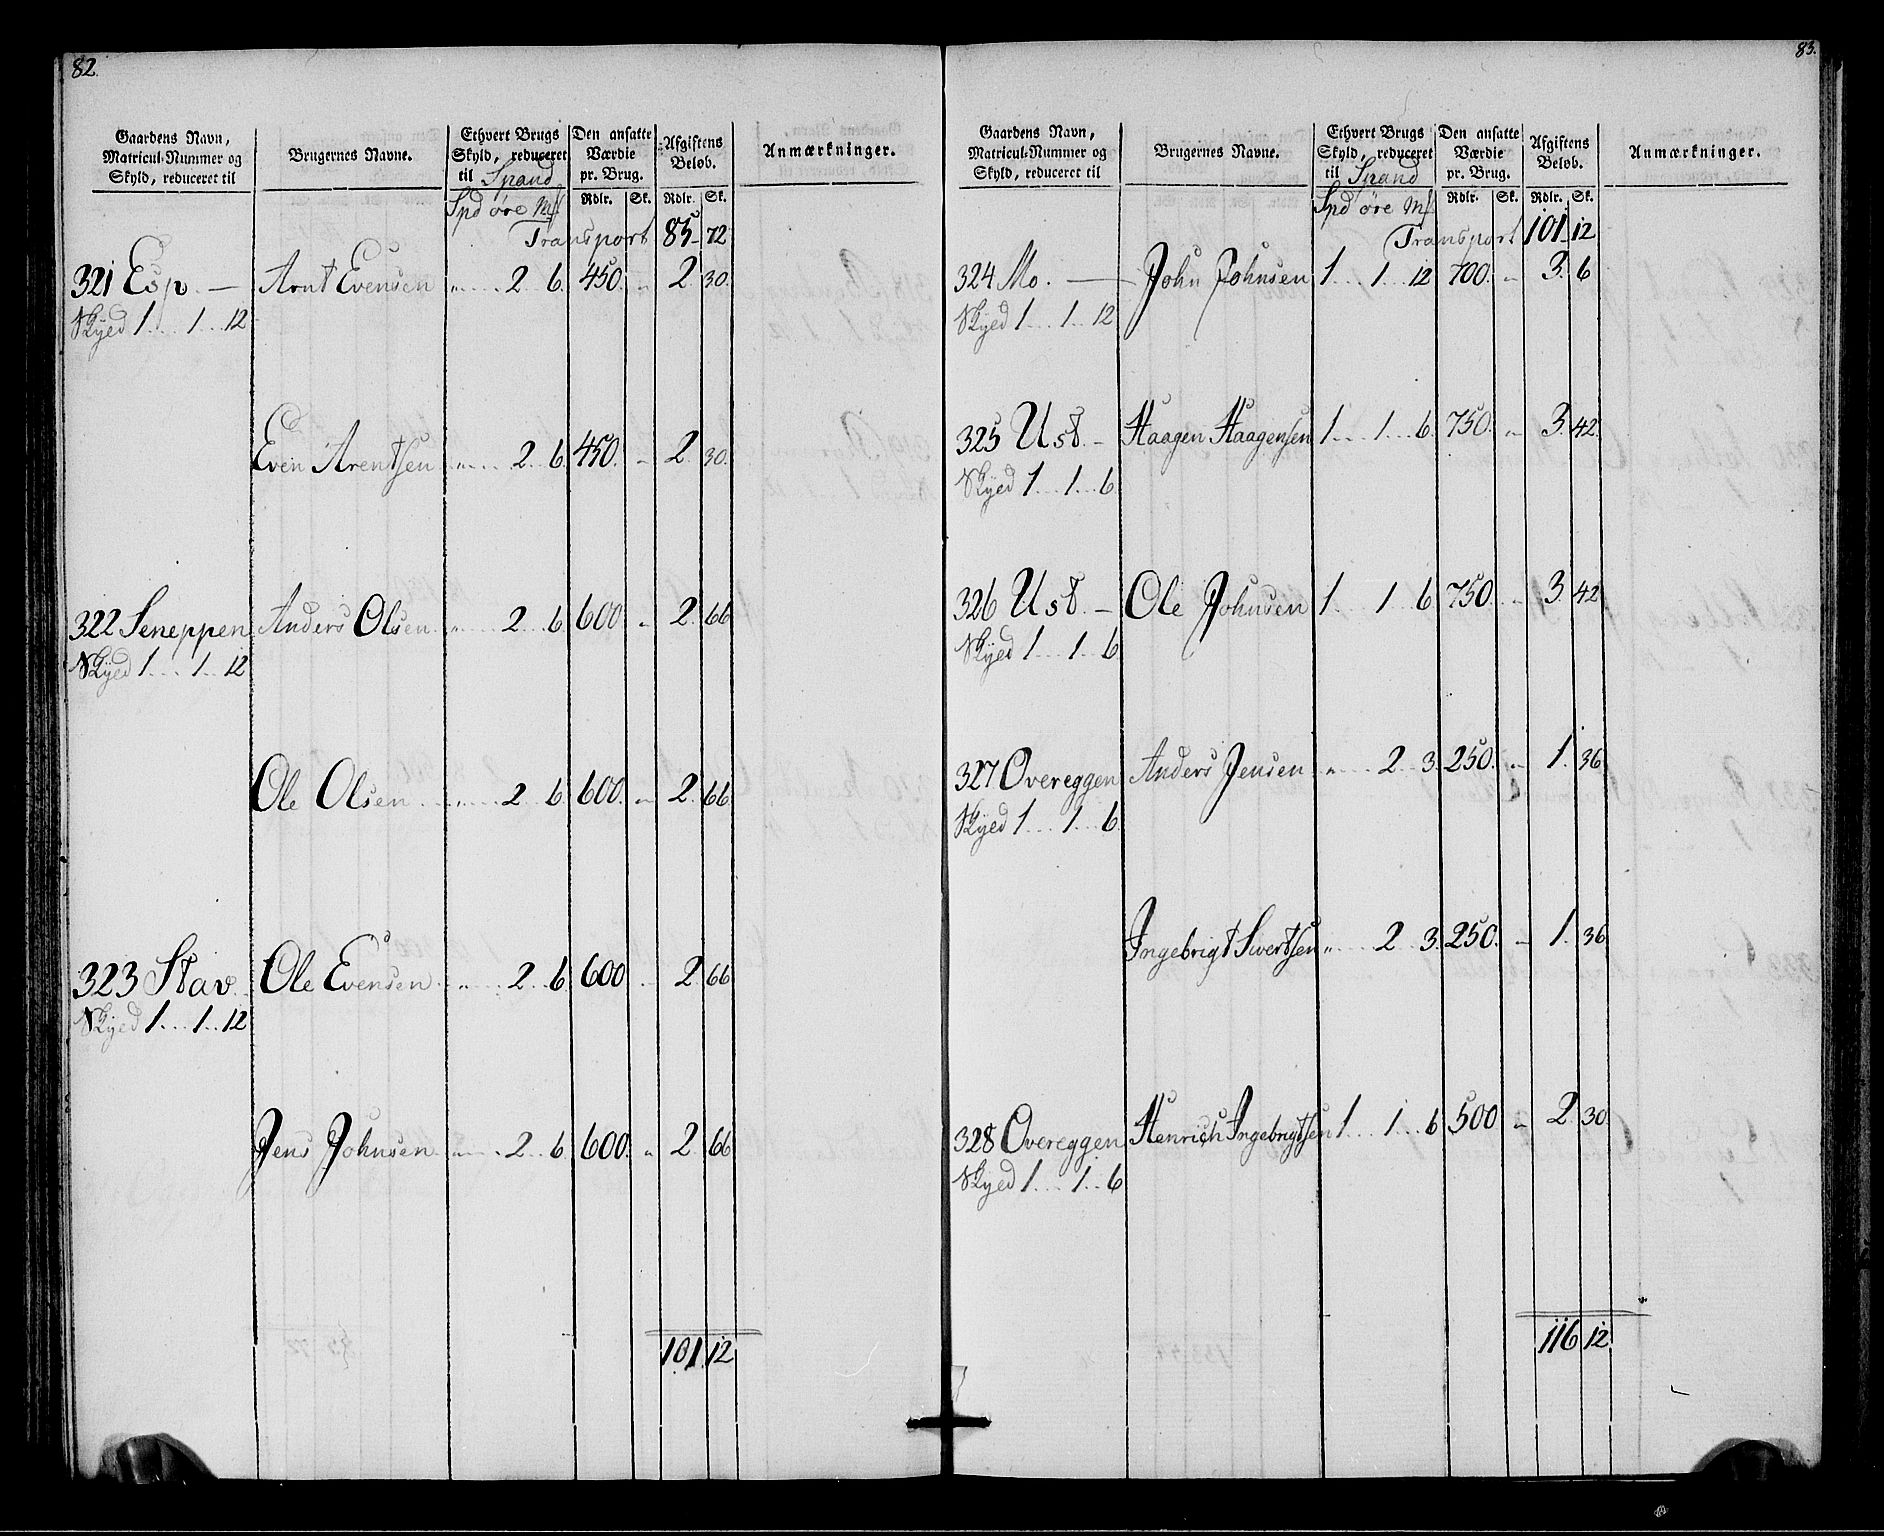 82.
Gaardens Navn, Matricul-Nummer og Skyld, reduceret til | Brugernes Navne. | Ethvert Brugs Skyld, reduceret til Spand Spd øre Mf | Den ansatte Værdie pr. Brug. Rdlr. Sk. | Afgiftens Beløb. Rdlr. Sk. | Anmærkninger.
Transport 85 72
321 Esp. — Arnt Evensen „ 2 6. 450. „ 2. 30.
Skyed 1 . . . 1 . . 12
Even Arentsen „ 2 6. 450. „ 2. 30.
322 Seneppen Anders Olsen „ 2 6. 600 „ 2. 66
Skyed 1 . . . 1 . . 12
Ole Olsen „ 2 6. 600. „ 2. 66
323 Stav Ole Evensen „ 2 6. 600 „ 2. 66
Skyed 1 . . . 1 . . 12
Jens Johnsen „ 2 6. 600. „ 2. 66
101. 12
83.
Gaardens Navn, Matricul-Nummer og Skyld, reduceret til | Brugernes Navne. | Ethvert Brugs Skyld, reduceret til Spand Spd øre Mf | Den ansatte Værdie pr. Brug. Rdlr. Sk. | Afgiftens Beløb. Rdlr. Sk. | Anmærkninger.
Transport 101 12
324 Mo. — John Johnsen 1 1 12 700. „ 3. 6
Skyed 1 . . . 1 . . 12
325 Ust. — Haagen Haagensen 1 . . . 1 . . 6. 750. „ 3. 42.
Skyed 1 . . . 1 . . 6
326 Ust. — Ole Johnsen 1 . . . 1 6 750. „ 3. 42
Skyed 1 . . . 1 . . 6
327 Overeggen Anders Jensen „ 2 3. 250. „ 1. 36
Skyed 1 . . . 1 . . 6.
Ingebrigt Sivertsen „ 2 3. 250. „ 1. 36
328 Overeggen Henrich Ingebrigtsen 1 . . . 1 . . 6 500 „ 2. 30
Skyed 1 . . . 1 . . 6
116 12